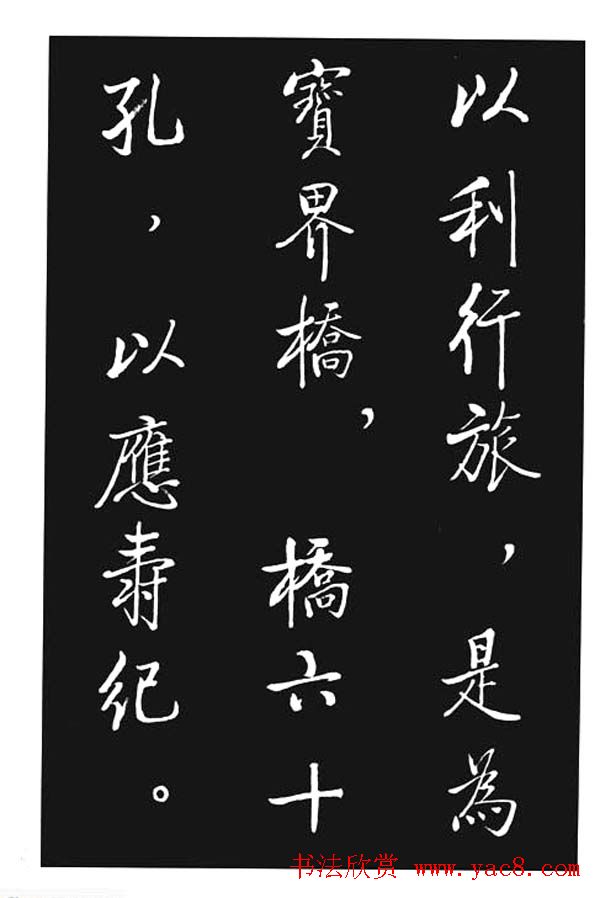 以利行旅，是為
寶界橋，橋六十
孔，以應壽紀。
书法欣赏 www.yac8.com